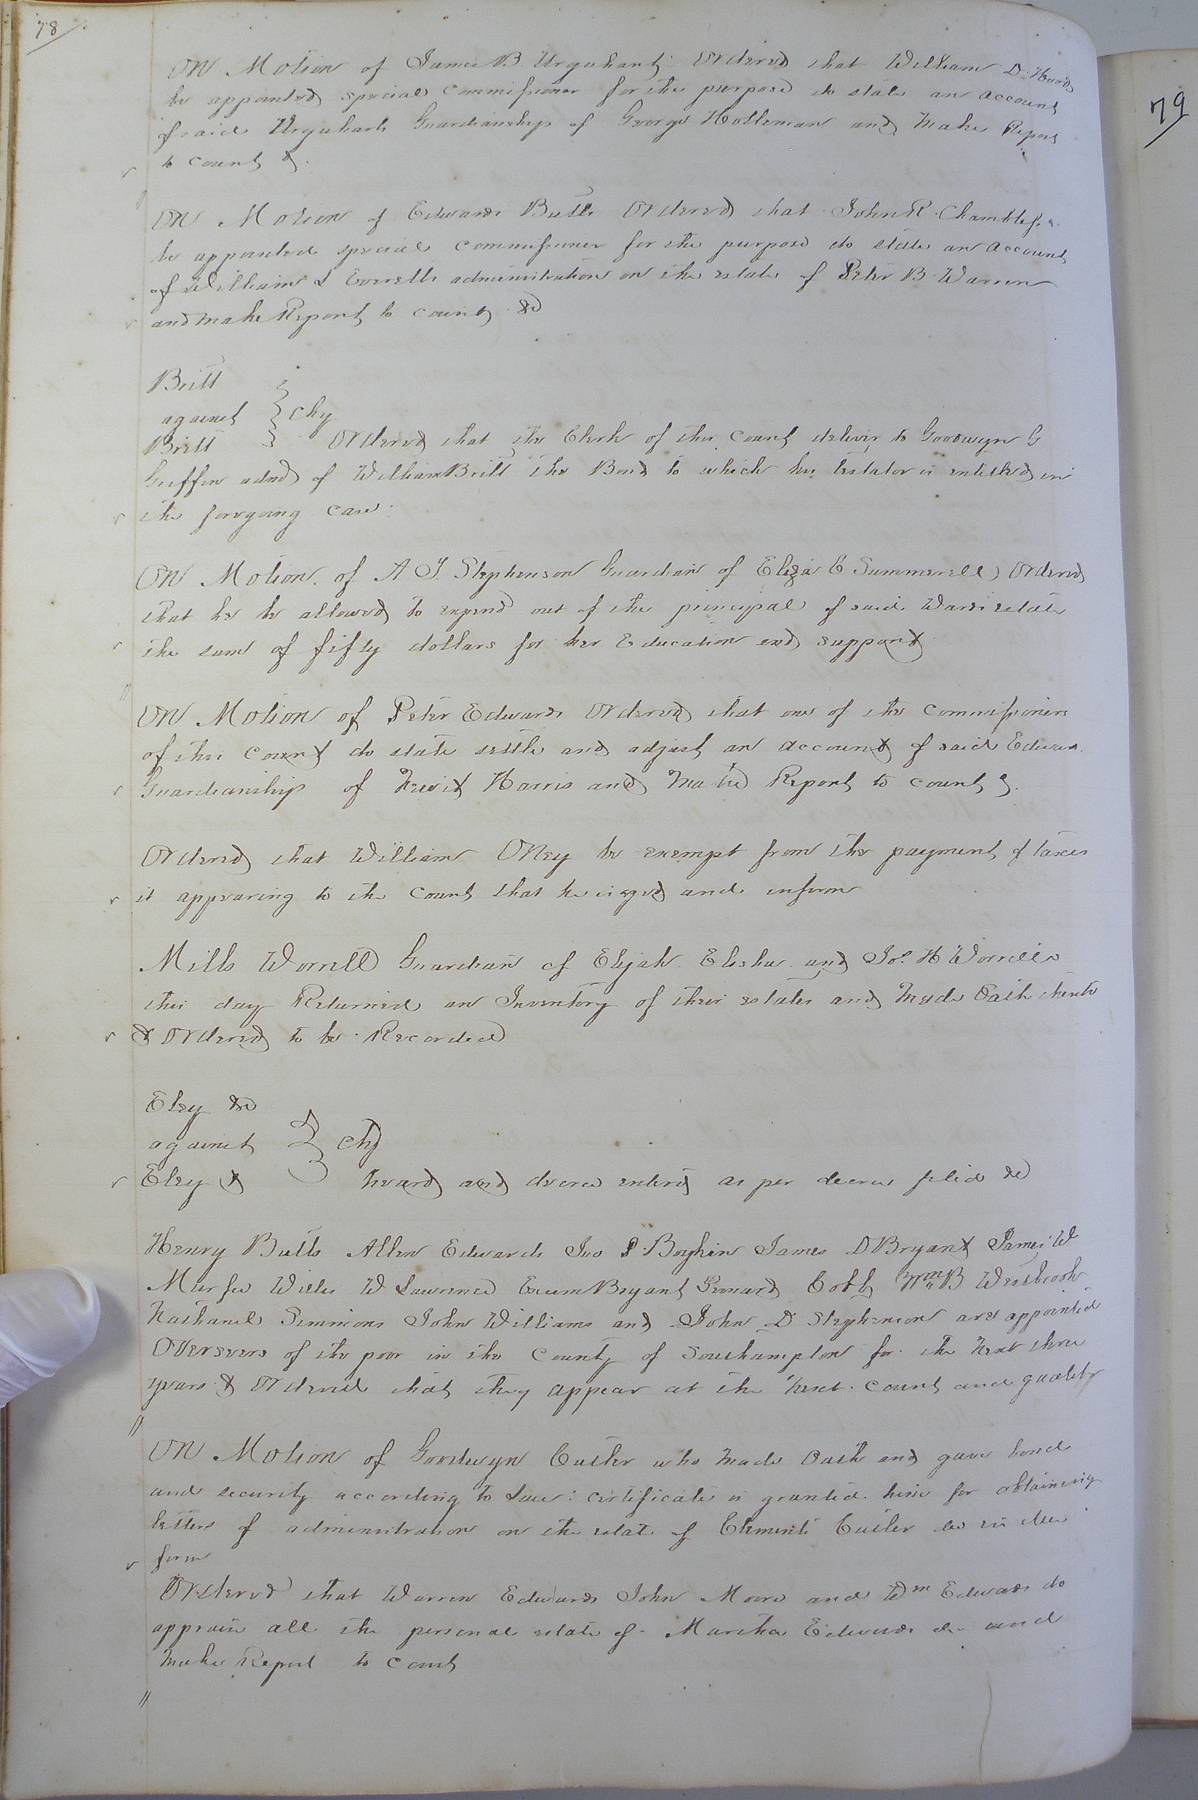 78
79
On Motion of James B Urquhart Ordered that William D. Hood
be appointed special commissioner for the purpose to state an account
of said Urquharts Guardianship of George Holleman and make Report
to court &.
On Motion of Edwards Butts Ordered that John R. Chambless
be appointed special commissioner for the purpose do state an account
of William L Everetts administration on the estate of Peter B. Warren
and make Report to court &c
Britt
against } chy
Britt Ordered that the Clerk of this court deliver to Goodwyn G
Griffin admr of William Britt the Bond to which his testator is entitled in
the foregoing case.
On Motion of A J. Stephenson Guardian of Eliza E Summerell Ordered
that he be allowed to expend out of the principal of said Wards estate
the sum of fifty dollars for her Education and support
On Motion of Peter Edwards Ordered that one of the commissioners
of this court do state settle and adjust an account of said Edwards
Guardianship of Harris and make Report to court &.
Ordered that William be exempt from the payment of taxes
it appearing to the court that he is aged and infirm
Mills Worrell Guardian of Elijah Elisha and Jos. H Worrells
this day Returned an Inventory of their estates and made Oath thereto
& Ordered to be Recorded
Eley &c
against } chy
Eley & heard and decree entered as per decree filed &c
Henry Butts Allen Edwards Jno P Boykin James D Bryant James W
Murfee Willis W Lawrence Bryant Cobb Wm B Westbrook
Nathaniel Simmons John Williams and John D Stephenson are appointed
Overseers of the poor in the county of Southampton for the next three
years & Ordered that they appear at the next court and qualify
On Motion of Goodwyn Cutler who made Oath and gave bond
and security according to Law: certificate is granted him for obtaining
letters of administration on the estate of Clements Cutler dec in due
form
Ordered that Warren Edwards John Moore and Wm Edwards do
appraise all the personal estate of Martha Edwards dec and
make Report to court